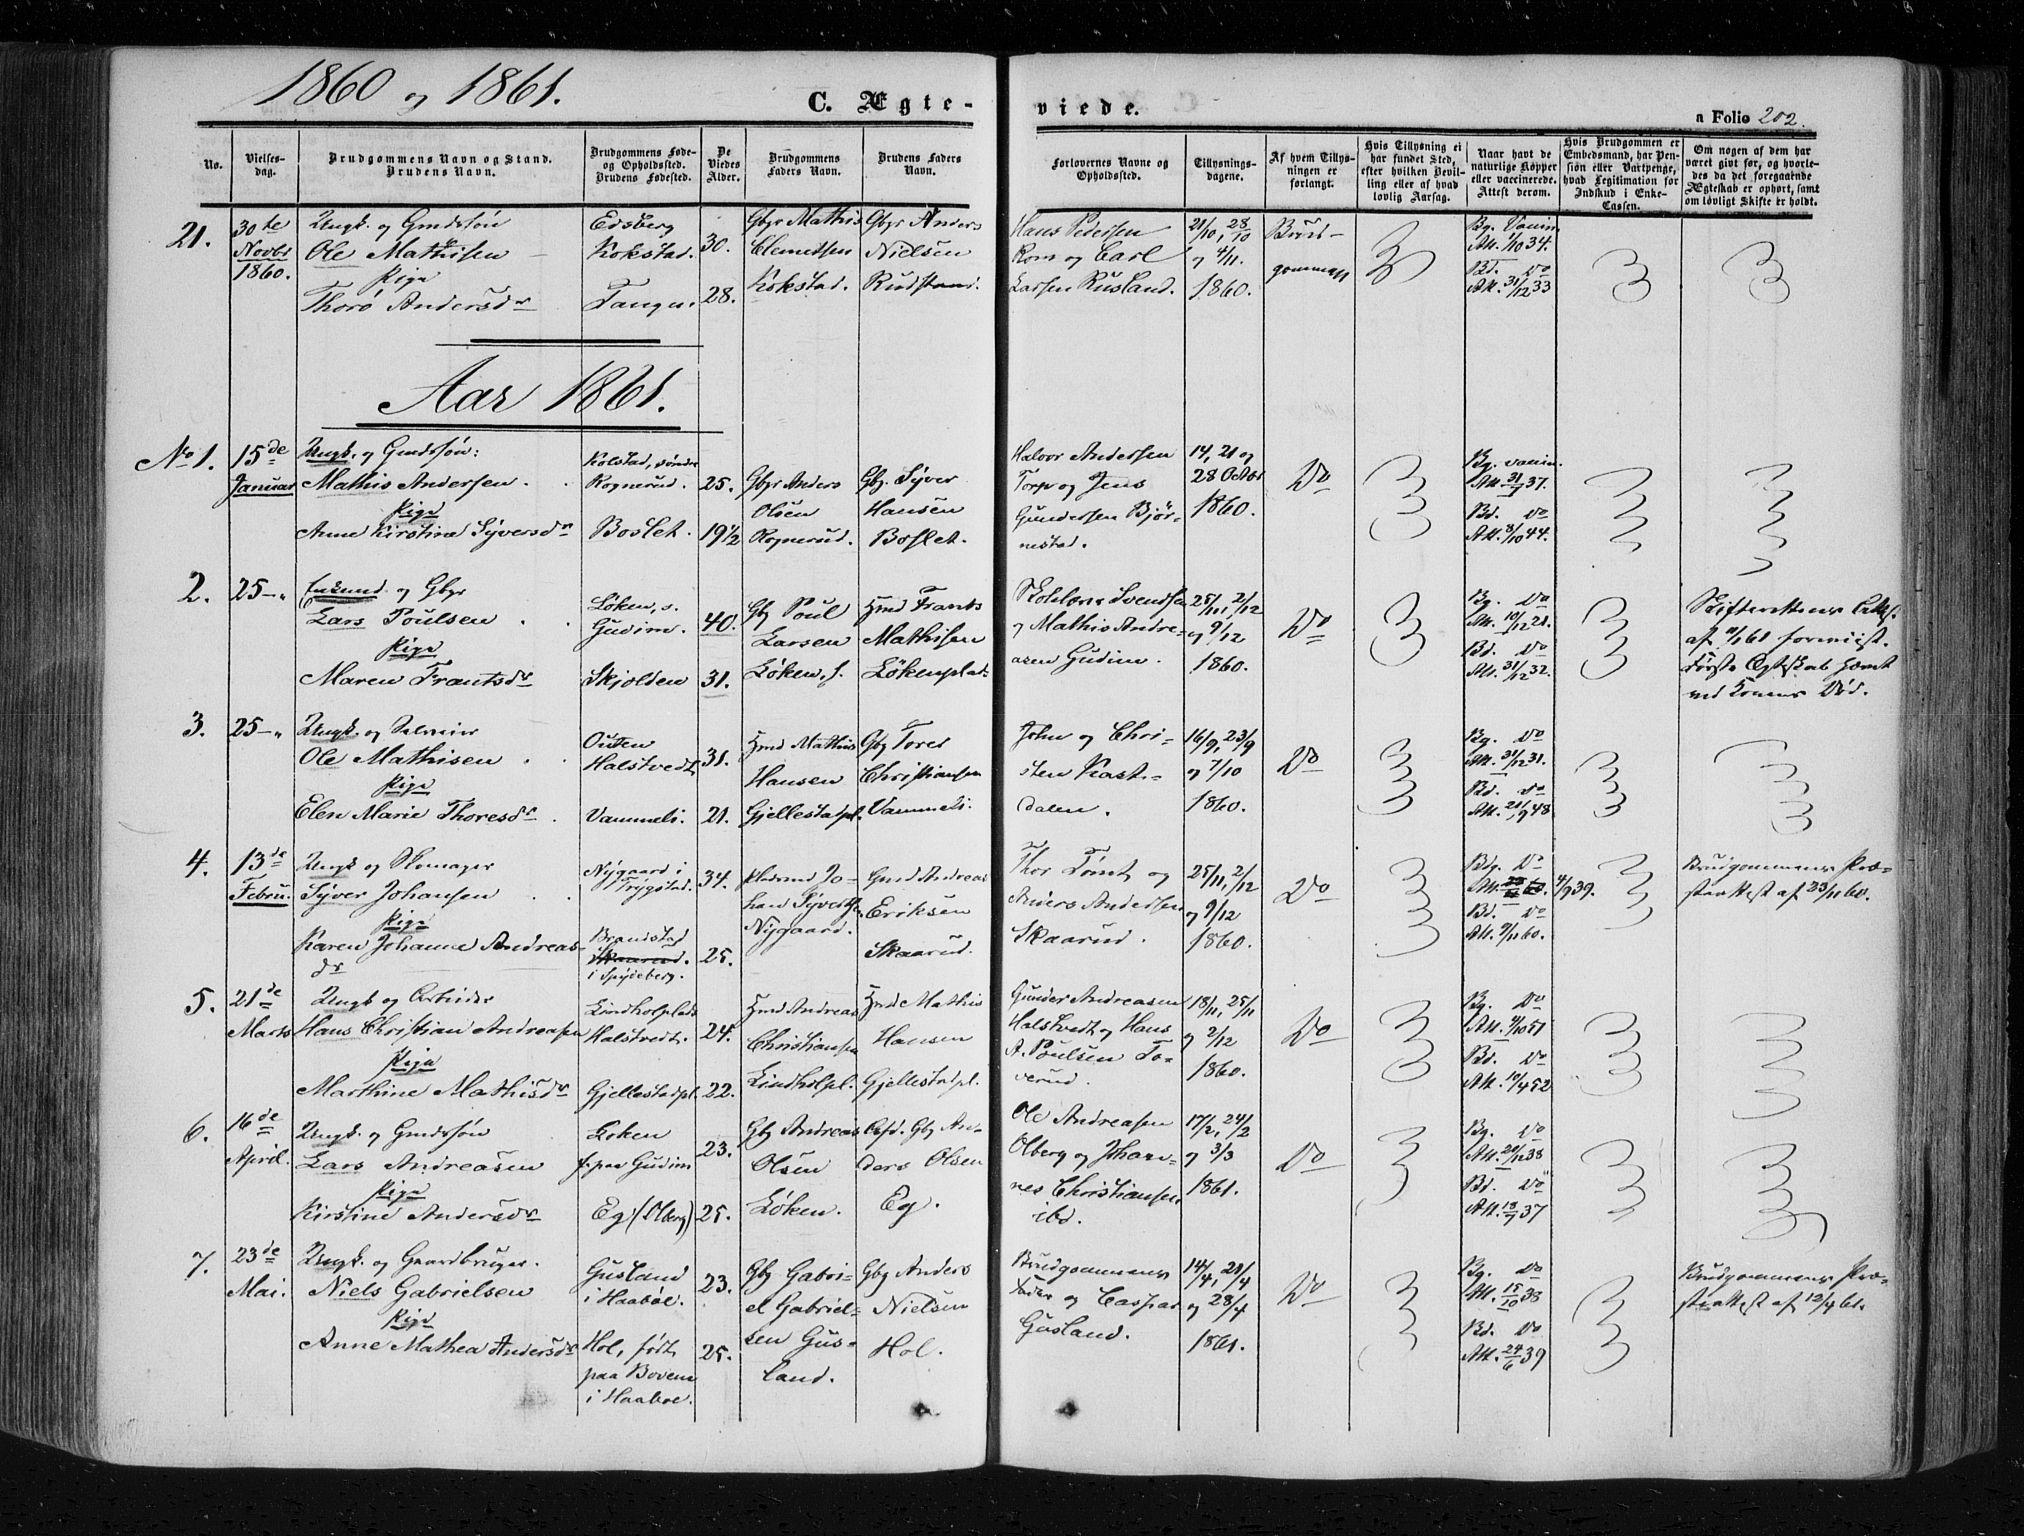 1860 og 1861.
C. Ægte-
viede.
Folio 202.
No.
Vielses-
dag.
Brudgommens Navn og Stand.
Brudens Navn.
Brudgommens Føde-
og Opholdssted.
Brudens Fødested.
De
Viedes
Alder.
Brudgommens
Faders Navn.
Brudens Faders
Navn.
Forlovernes Navne og
Opholdssted.
Tillysnings-
dagene.
Af hvem Tillys-
ningen er
forlangt.
Hvis Tillysning ei
har fundet Sted,
efter hvilken Bevil-
ling eller af hvad
lovlig Aarsag.
Naar havt de
naturlige Kopper
eller vaccinerede.
Attest derom.
Hvis Brudgommen er
Embedsmand, har Pen-
sion eller Vartpenge,
hvad Legitimation for
Indskud i Enke-
Cassen.
Om nogen af dem har
været gift før, og hvorle-
des da det foregaaende
Ægteskab er ophørt, samt
om lovligt Skifte er holdt.
21.
30te
Novbr
1860.
Ungk. og Gmdssøn
Ole Mathisen
Pige
Thorø Andersdr
Edsberg
Kokstad.
Tangen.
30.
28.
Gbgr Mathis
Clemetsen
Kokstad.
Gbgr Anders
Nielsen
Rudstrand.
Hans Pedersen
Rom og Carl
Larsen Rusland.
21/10, 28/10
og 4/11.
1860.
Brud-
gommen
Bg. Vaccin.
Att. 1/10 34.
Bd. do
Att. 31/12 33
Aar 1861.
No 1.
15de
Januar
Ungk. og Gmdssøn:
Mathis Andersen
Pige
Anne Kirstine Syversdr
Kolstad, søndre
Rognerud.
Boslet.
25.
19 1/2
Gbgr Anders
Olsen
Rognerud.
Gbg. Syver
Hansen
Boslet.
Halvor Andersen
Torp og Jens
Gundersen Bjør-
nestad.
14, 21 og
28 Octbr
1860.
Do
Bg. vaccin.
Att. 31/7 37.
Bd. do
Att. 8/10 44.
2.
25-"
Enkemd og Gbgr
Lars Poulsen
Pige
Maren Frantsdr
Løken, s.
Gudim.
Skjolden
40.
31.
Gbg Poul
Larsen
Løken, s.
Hmd Frants
Mathisen
Løkenplads
Svendsen
og Mathis Andre-
asen Gudim.
25/11, 2/12
og 9/12
1860.
Do
Bg. do
Att. 10/12 21.
Bd. do
Att. 31/12 32.
Skifterettens Attest
af 11/1 61 forevist.
Første Ægteskab hævet
ved Konens Død.
3.
25-"
Ungk. og Selveier
Ole Mathisen
Pige
Elen Marie Thoresdr
Outen
Halstvedt
Vammeli.
31.
21.
Hmd Mathis
Hansen
Gjellestadpl.
Gbg Tores
Christiansen
Vammeli.
John og Chri-
sten Kast-
dalen.
16/9, 23/9
og 7/10
1860.
Do
Bg. do
Att. 31/12 31.
Bd. do
Att. 21/9 48.
4.
13de
Febru.
Ungk og Skomager
Syver Johansen
Pige
Karen Johanne Andreas-
dr
Nygaard i
Trygstad.
Brandstad
Skaarud.
i Spydeberg.
34.
25.
Pladsmd Jo-
han Syvertsen
Nygaard.
Gmd Andreas
Eriksen
Skaarud.
Thor Tomt og
Anders Andersen
Skaarud.
25/11, 2/12
og 9/12
1860.
Do
Bdg. do
4/9 39.
Bd. do
Att. 9/11 60.
Brudgommens Præ-
steattest af 23/11 60.
5.
21de
Marts
Ungk og Arbeider
Hans Christian Andreasen
Pige
Marthine Mathisdr
Lindholplads
Halstvedt.
Gjellestadpl.
24.
22.
Hmd Andreas
Christiansen
Lindholpl.
Hmd Mathis
Hansen
Gjellestadpl.
Gunder Andreasen
Halstvedt og Hans
A. Poulsen To-
verud.
18/11, 25/11
og 2/12
1860.
Do
Bg. do
Att. 9/10 51
Bd. do
Att. 10/4 52
6.
16de
April.
Ungk. og Gmdssøn
Lars Andreasen
Pige
Kirstine Andersdr
Løken
f. paa Gudim
Eg (Olberg)
23.
25.
Gbg Andreas
Olsen
Løken.
Gbg An-
ders Olsen
Eg.
Ole Andreasen
Olberg og Johan-
nes Christiansen
ibd.
17/2, 24/2
og 3/3
1861.
Do
Bg. do
Att. 20/12 38
Bd. do
Att. 18/7 37
7.
23de
Mai.
Ungk. og Gaardbruger.
Niels Gabrielsen
Pige
Anne Mathea Andersdr
Gusland
i Haabøl.
Hol, født
paa Boven
i Haabøl.
23.
25.
Gbg Gabri-
el Gabriel-
sen Gus-
land.
Gbg Anders
Nielsen
Hol.
Brudgommens
Fader og Caspar
Gusland.
14/4, 21/4
og 28/4
1861.
Do
Bg. do
Att. 15/10 38
Bd. do
Att. 24/6 39
Brudgommens Præ-
steattest af 12/4 61.